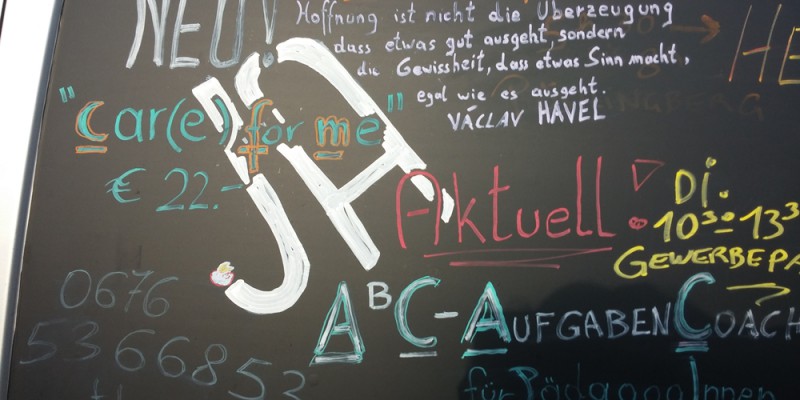 NEU!
Hoffnung ist nicht die Überzeugung
dass etwas gut ausgeht, sondern
die Gewissheit, dass etwas Sinn macht,
egal wie es ausgeht.
VÁCLAV HAVEL
"Car(e) for me"
€ 22.-
JA
Aktuell!
Di.
10³⁰-13³
GEWERBEPA
0676
5366853
ABC-AUFGABENCOACH
für PädagogInnen